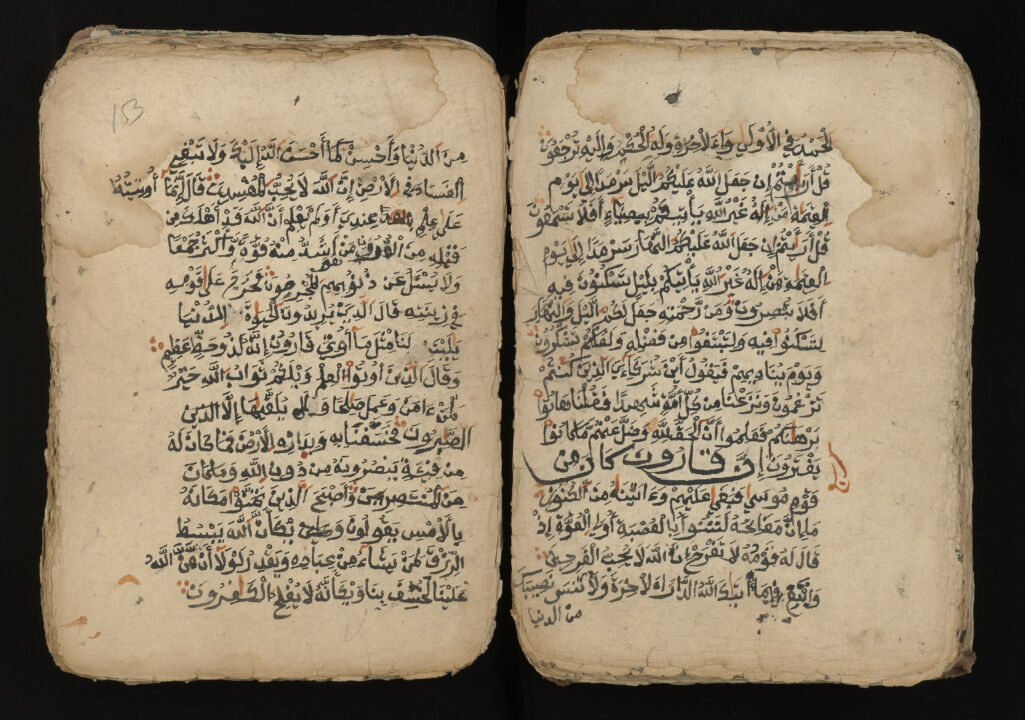 الحمد في الأولى والاخرة وله الحكم وإليه ترجعون
قل أرايتم إن جعل الله عليكم اليل سرمدا إلى يوم
القيمة من إله غير الله يأتيكم بضياء أفلا تسمعون
قل أرايتم إن جعل الله عليكم النهار سرمدا إلى يوم
القيمة من إله غير الله يأتيكم بليل تسكنون فيه
أفلا تبصرون ومن رحمته جعل لكم اليل والنهار
لتسكنوا فيه ولتبتغوا من فضله ولعلكم تشكرون
ويوم يناديهم فيقول أين شركاءي الذين كنتم
تزعمون ونزعنا من كل أمة شهيدا فقلنا هاتوا
برهنكم فعلموا أن الحق لله وضل عنهم ما كانوا
يفترون إن قارون كان من
قوم موسى فبغى عليهم وءاتينه من الكنوز
ما إن مفاتحه لتنوأ بالعصبة أولي القوة إذ
قال له قومه لا تفرح إن الله لا يحب الفرحين
وابتغ فيما ءاتيك الله الدار الاخرة ولا تنس نصيبك
من الدنيا
153
من الدنيا وأحسن كما أحسن الله إليك ولا تبغ
الفساد في الارض إن الله لا يحب المفسدين قال إنما أوتيته
على علم عندي أولم يعلم أن الله قد أهلك من
قبله من القرون من هو أشد منه قوة وأكثر جمعا
ولا يسئل عن ذنوبهم المجرمون فخرج على قومه
في زينته قال الذين يريدون الحيوة الدنيا
يليت لنا مثل ما أوتي قارون إنه لذو حظ عظيم
وقال الذين أوتوا العلم ويلكم ثواب الله خير
لمن ءامن وعمل صلحا ولا يلقيها إلا
الصبرون فخسفنا به وبداره الأرض فما كان له
من فئة ينصرونه من دون الله وما كان
من المنتصرين وأصبح الذين تمنوا مكانه
بالأمس يقولون ويكأن الله يبسط
الرزق لمن يشاء من عباده ويقدر لولا أن من الله
علينا لخسف بنا ويكأنه لا يفلح الكفرون